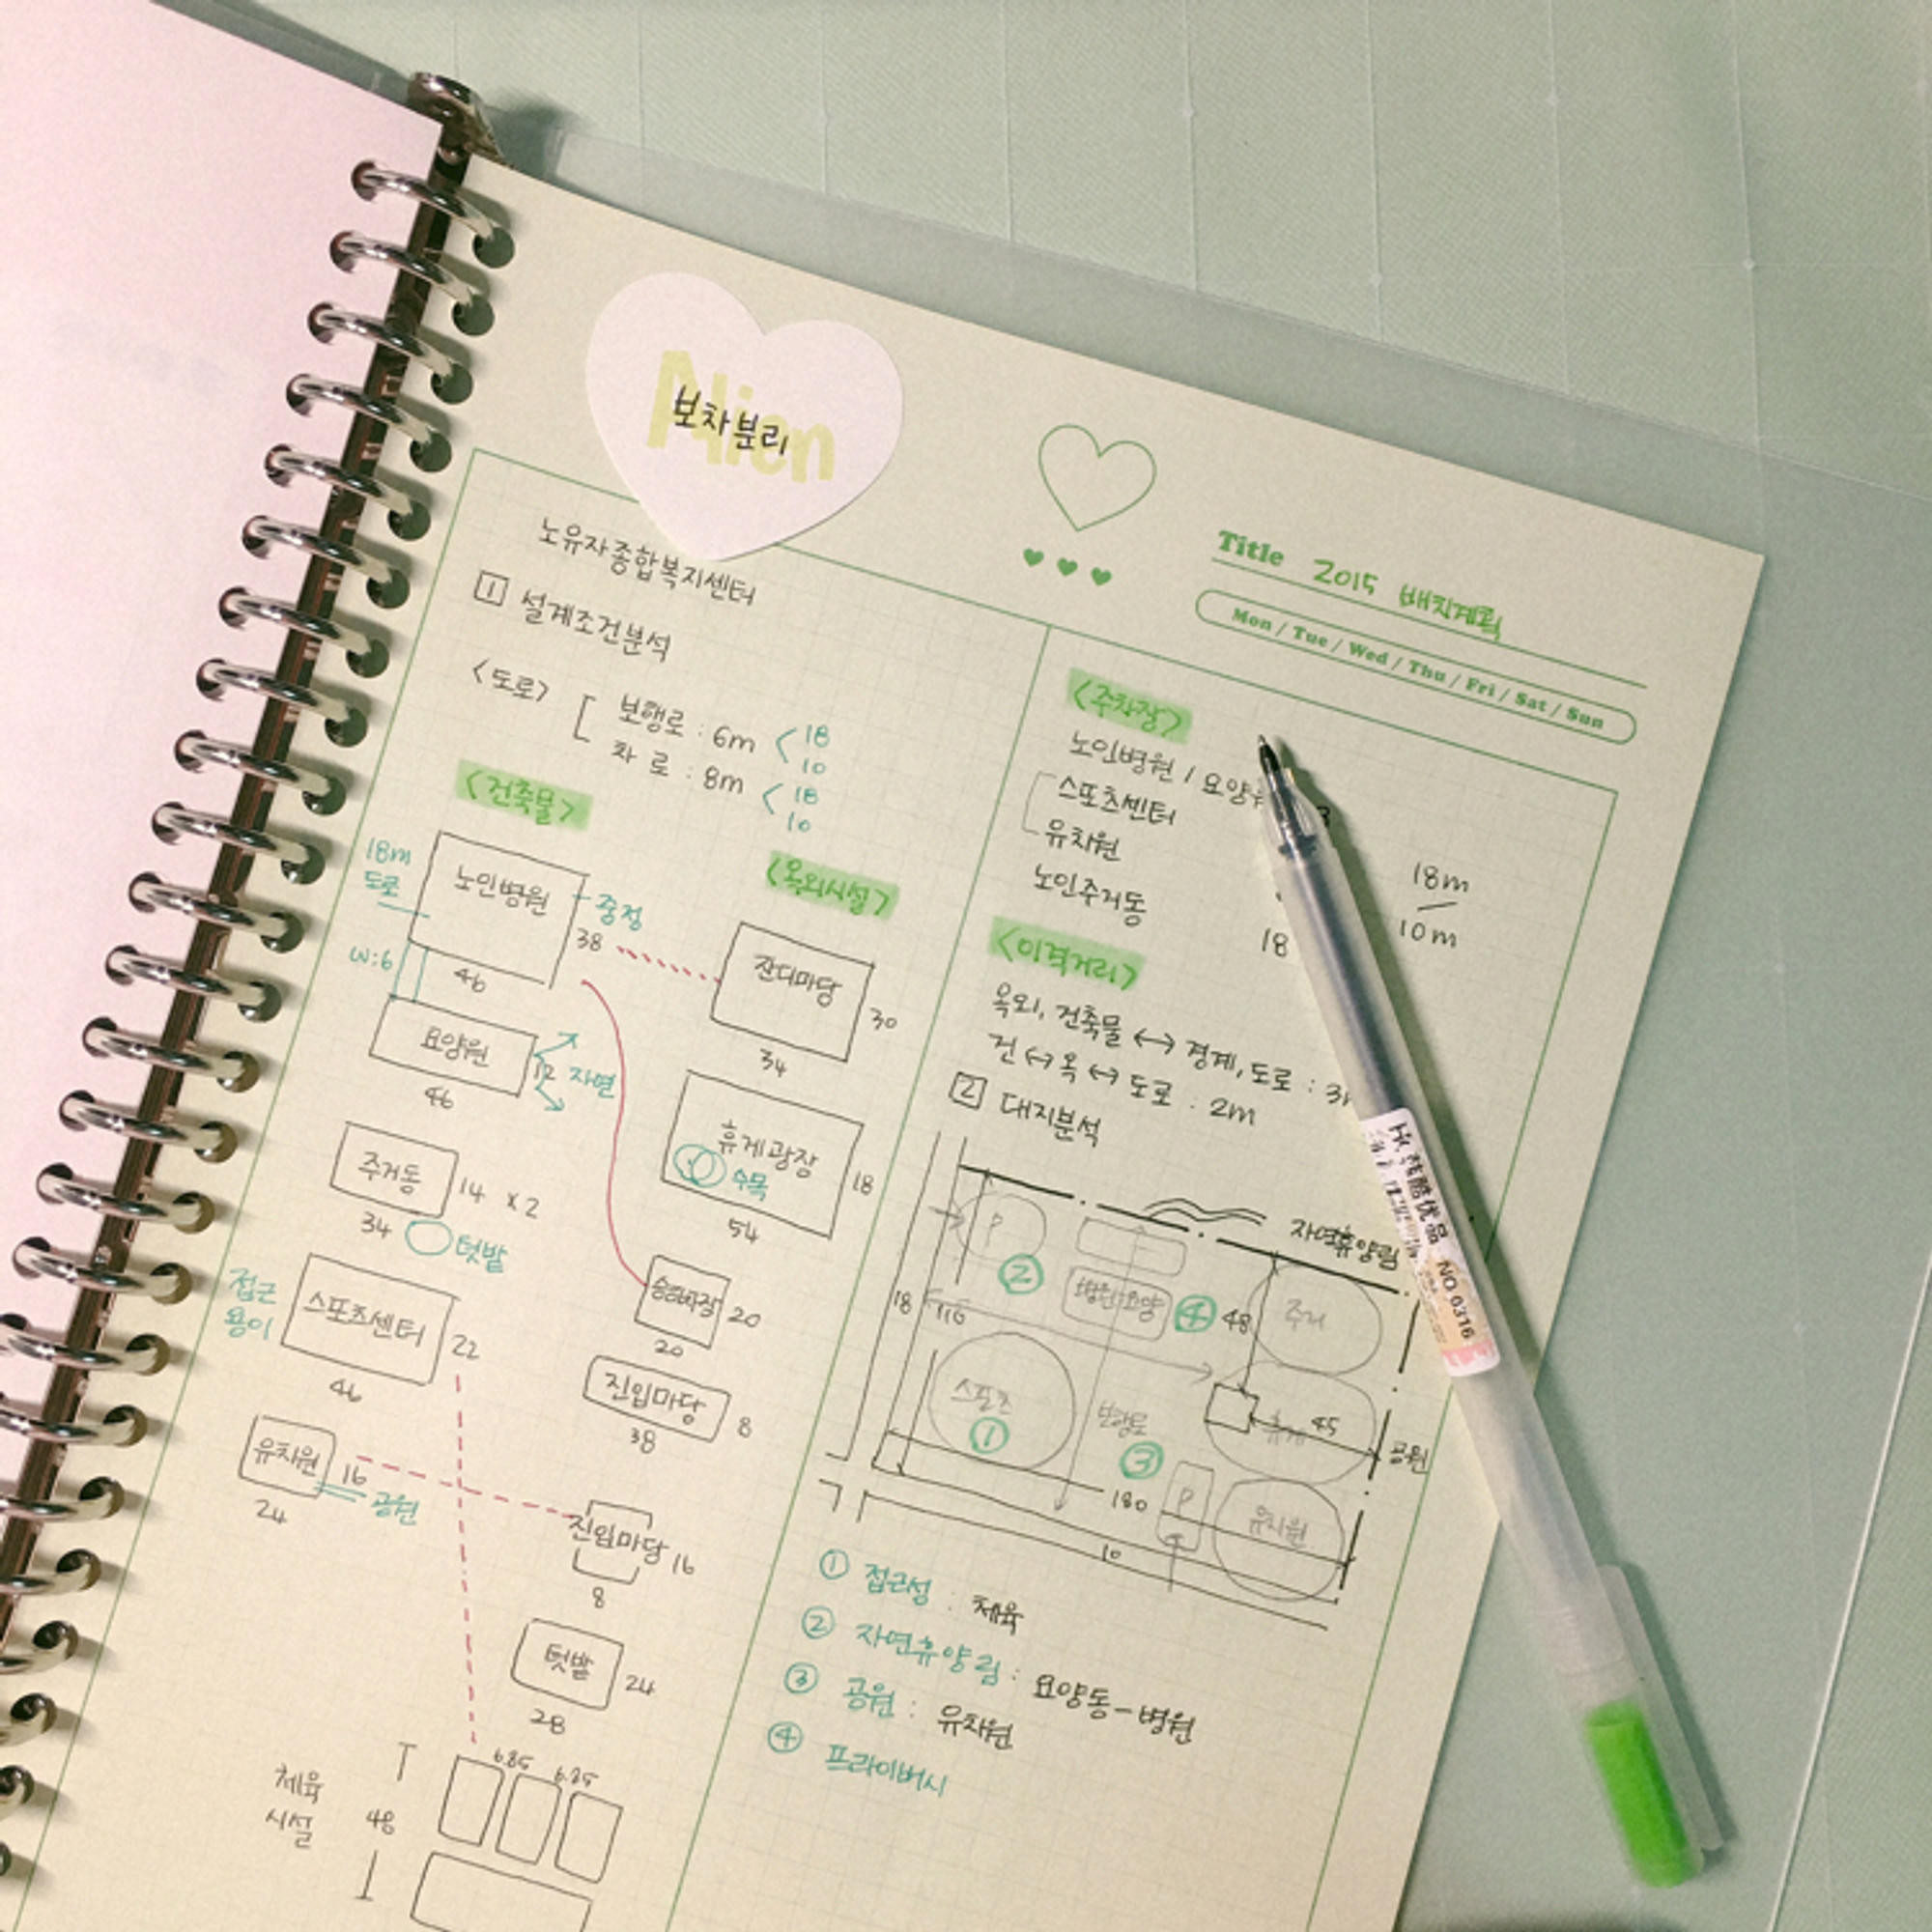 Alien
보차분리
Title 2015 배치계획
Mon / Tue / Wed / Thu / Fri / Sat / Sun
노유자종합복지센터
1 설계조건분석
<도로>
보행로 : 6m < 18 10
차 로 : 8m < 18 10
<건축물>
18m 도로
노인병원
중정
38
46
W:6
요양원
12
자연
46
주거동
14 x 2
34
텃밭
접근 용이
스포츠센터
22
46
유치원
16
공원
24
<옥외시설>
잔디마당
30
34
휴게광장
수목
18
54
승하차장
20
20
진입마당
8
38
진입마당
16
8
텃밭
24
28
체육 시설
48
6.85
6.85
<주차장>
노인병원 / 요양
스포츠센터
유치원
노인주거동
18
18m
10m
<이격거리>
옥외, 건축물 ↔ 경계, 도로 : 3m
건 ↔ 옥 ↔ 도로 : 2m
2 대지분석
자연휴양림
P
2
병원 요양
4
48
주거
18
116
스포츠
1
보행로
3
휴게
45
공원
180
P
유치원
10
① 접근성 : 체육
② 자연휴양림 : 요양동-병원
③ 공원 : 유치원
④ 프라이버시
韩酷优品
NO 0316